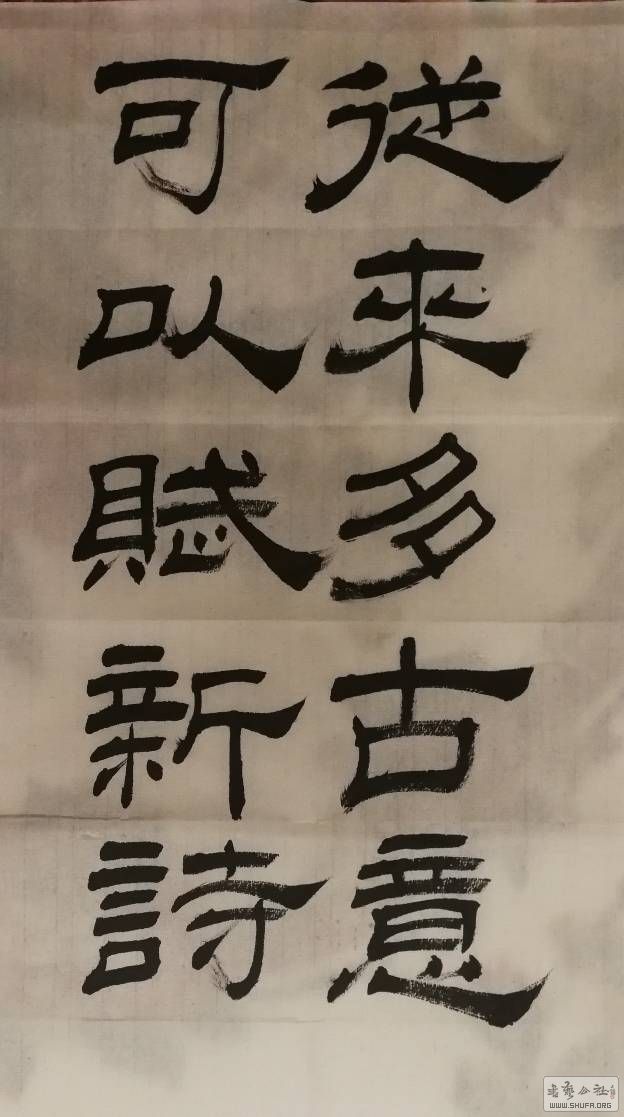 從來多古意
可以賦新詩
书艺公社
WWW.SHUFA.ORG